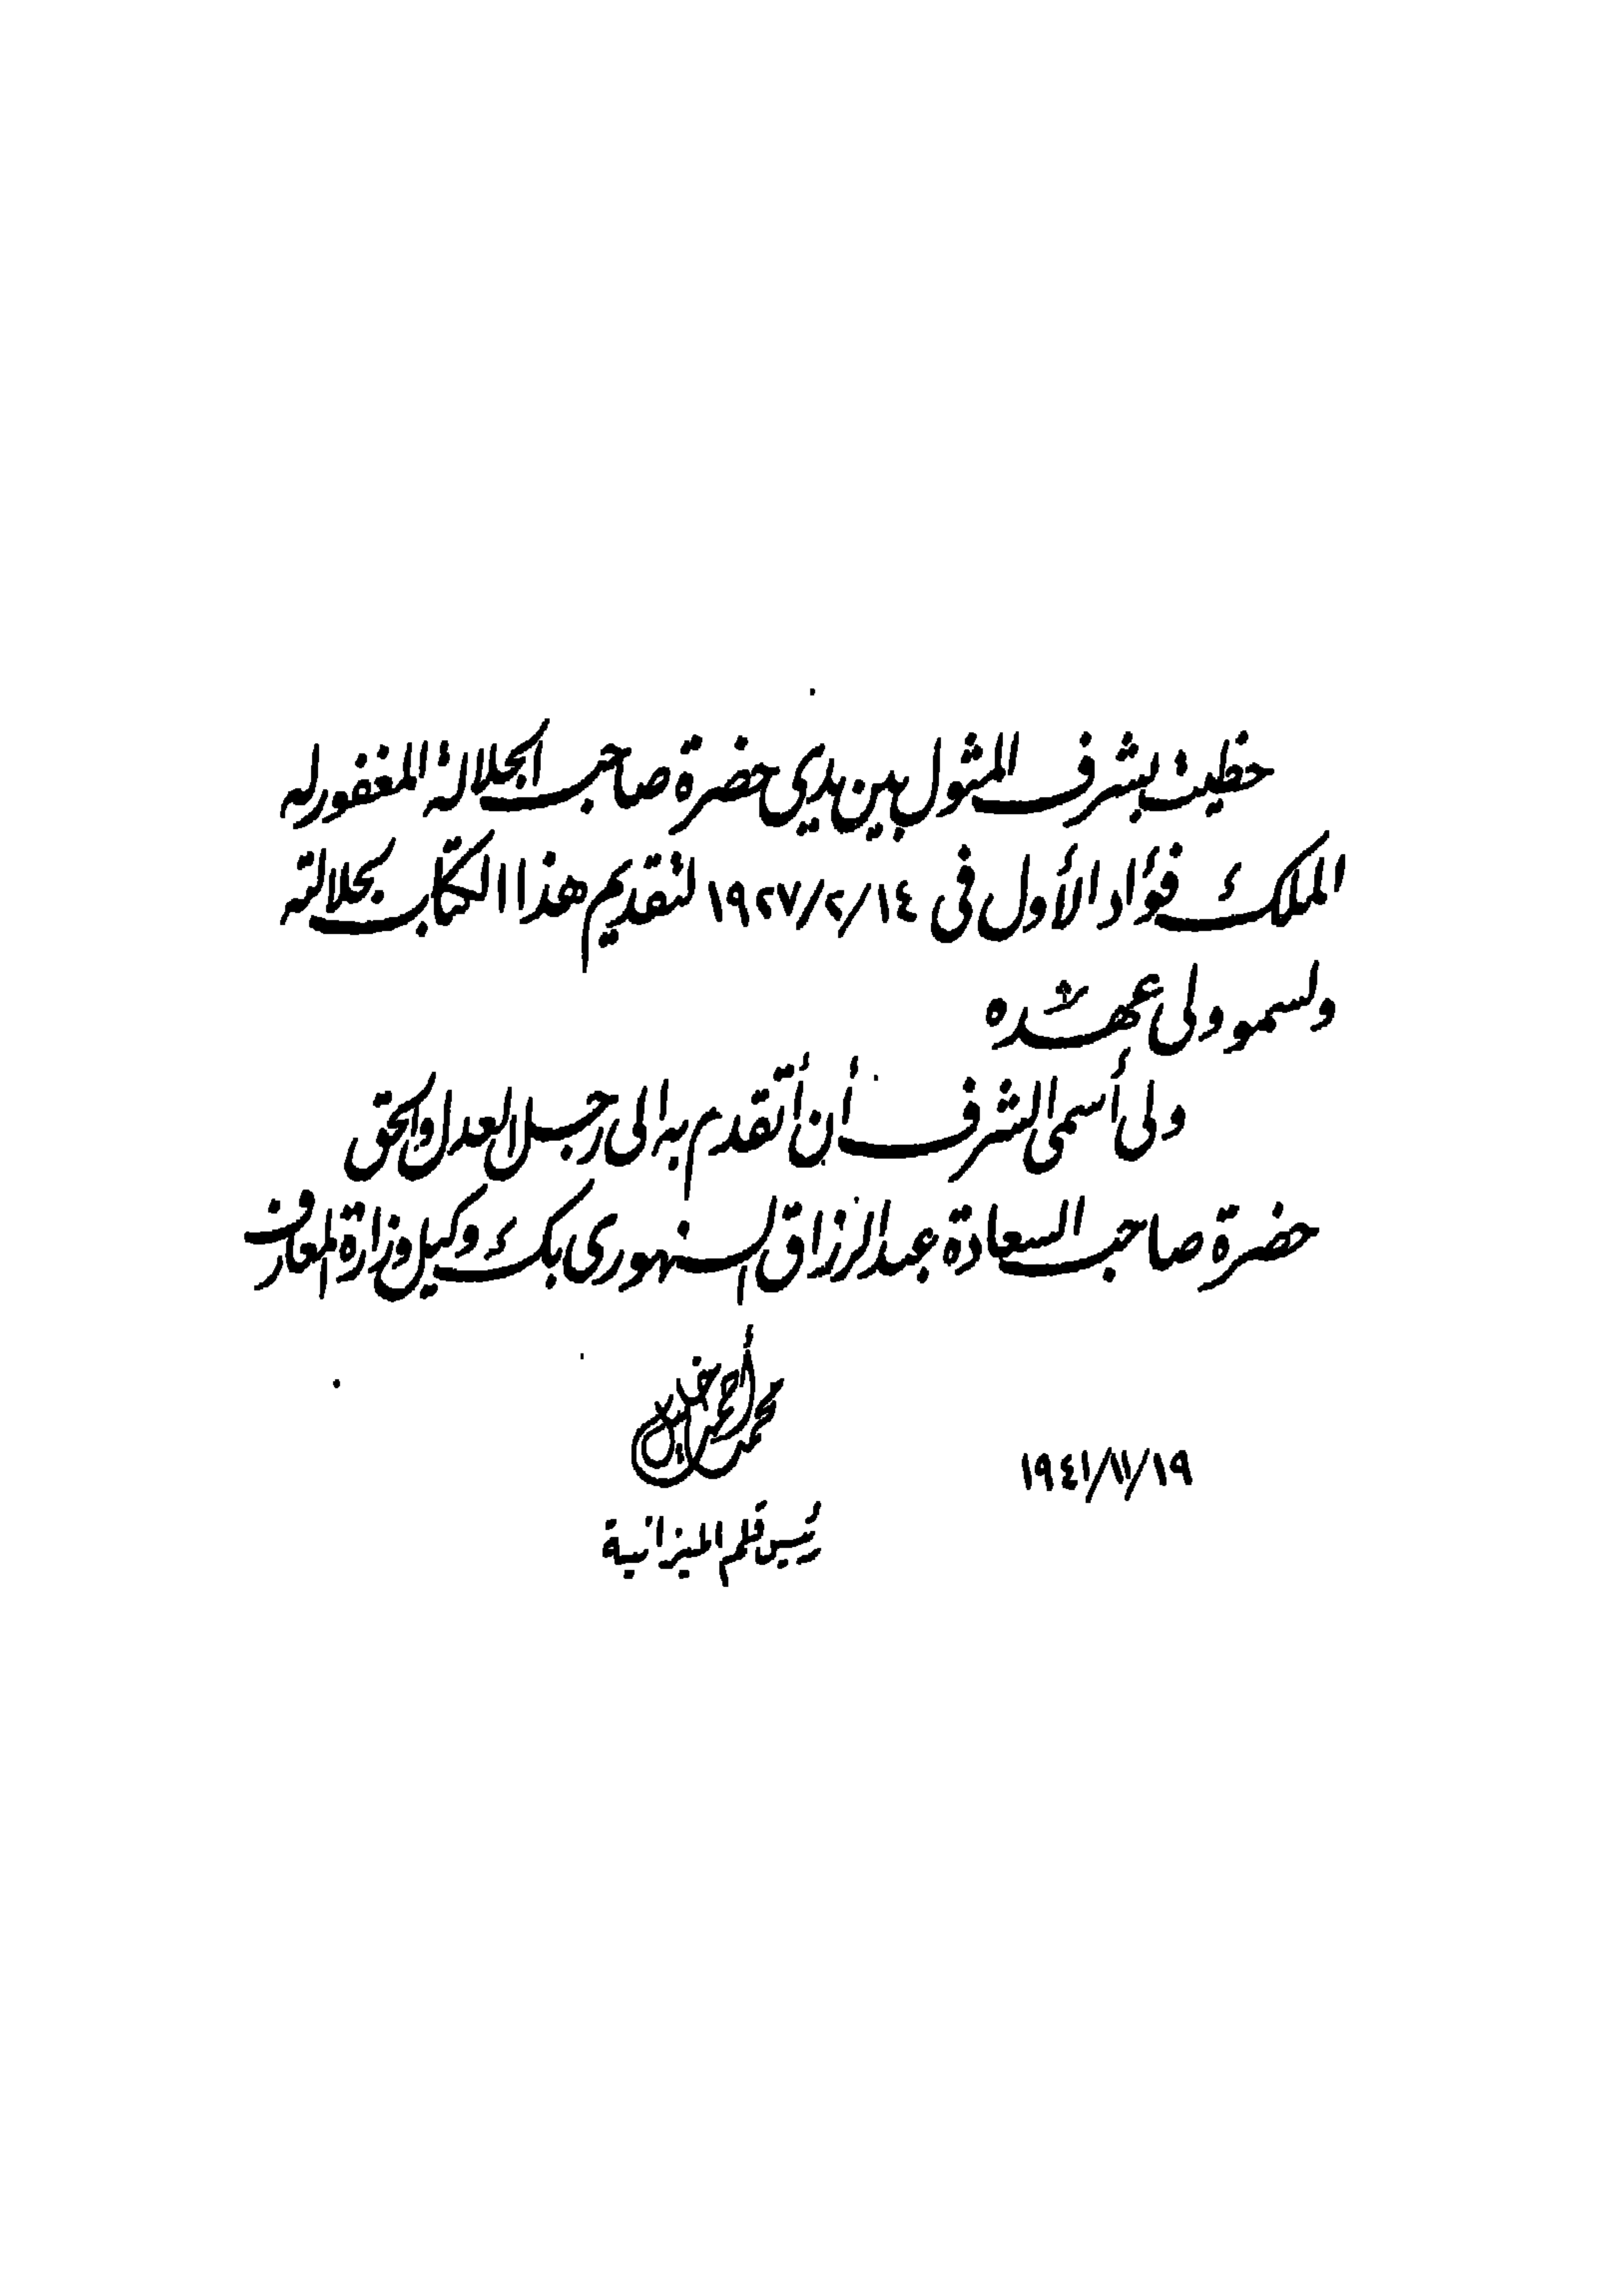 حظيت بشرف المثول بين يدي حضرة صاحب الجلالة المغفور له
الملك فؤاد الأول فى ١٤/٢/١٩٢٧ لتقديم هذا الكتاب لجلالته
ولسمو ولى عهده
ولى أسمى الشرف أن أتقدم به الى رجل العدل والحق
حضرة صاحب السعادة عبد الرزاق السنهورى بك وكيل وزارة المعارف
محمد أحمد
١٩/١١/١٩٤١
رئيس قلم الميزانية